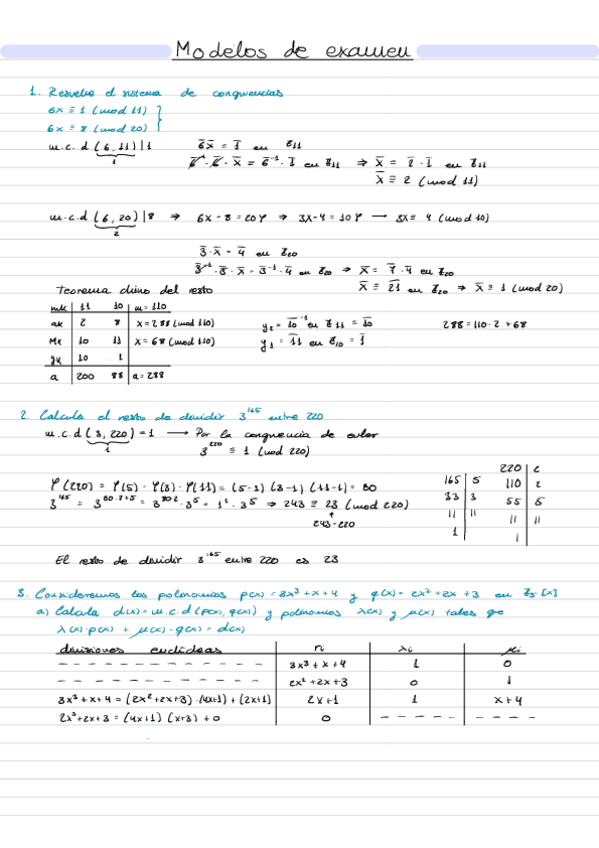 Modelos de examen
1. Resuelve el sistema de congruencias
6x ≡ 1 (mod 11)
6x ≡ 8 (mod 20)
m.c.d (6,11) | 1    6x̄ = 1̄ en Z₁₁
1    6̄⁻¹·6̄·x̄ = 6̄⁻¹·1̄ en Z₁₁ ⇒ x̄ = 2̄·1̄ en Z₁₁
x̄ ≡ 2 (mod 11)
m.c.d (6,20) | 8 ⇒ 6x - 8 = 20y ⇒ 3x-4 = 10y → 3x ≡ 4 (mod 10)
2
3̄·x̄ = 4̄ en Z₂₀
3̄⁻¹·3̄·x̄ = 3̄⁻¹·4̄ en Z₂₀ ⇒ x̄ = 7̄·4̄ en Z₂₀
x̄ ≡ 21 en Z₂₀ ⇒ x̄ ≡ 1 (mod 20)
Teorema chino del resto
mk 11 10 m = 110
ak 2 8 x = 288 (mod 110)    y₂ = 10⁻¹ en Z11 = 10    288 = 110·2 + 68
Mk 10 11 x ≡ 68 (mod 110)    y₁ = 11 en Z₁₀ = 1
yk 10 1
a 200 88 a = 288
2. Calcula el resto de dividir 3¹⁶⁵ entre 220
m.c.d (3,220) = 1 → Por la congruencia de euler
1    3²²⁰ ≡ 1 (mod 220)
φ(220) = φ(5)·φ(3)·φ(11) = (5-1)(3-1)(11-1) = 80
3¹⁶⁵ = 3⁸⁰·²⁺⁵ = 3⁸⁰·²·3⁵ = 1²·3⁵ ⇒ 243 ≡ 23 (mod 220)
243-220
165 5
33 3
11 11
1
220 2
110 2
55 5
11 11
1
El resto de dividir 3¹⁶⁵ entre 220 es 23
3. Consideremos los polinomios p(x) = 3x³+x+4 y q(x) = 2x²+2x+3 en Z₅[x]
a) Calcula d(x) = m.c.d (p(x), q(x)) y polinomios λ(x) y μ(x) tales que
λ(x)·p(x) + μ(x)·q(x) = d(x)
divisiones euclídeas ri λi μi
- - - - - - - - - - - - 3x³+x+4 1 0
- - - - - - - - - - - - 2x²+2x+3 0 1
3x³+x+4 = (2x²+2x+3)·(4x+1) + (2x+1) 2x+1 1 x+4
2x²+2x+3 = (4x+1)(x+3)+0 0 - - - - - - - - -